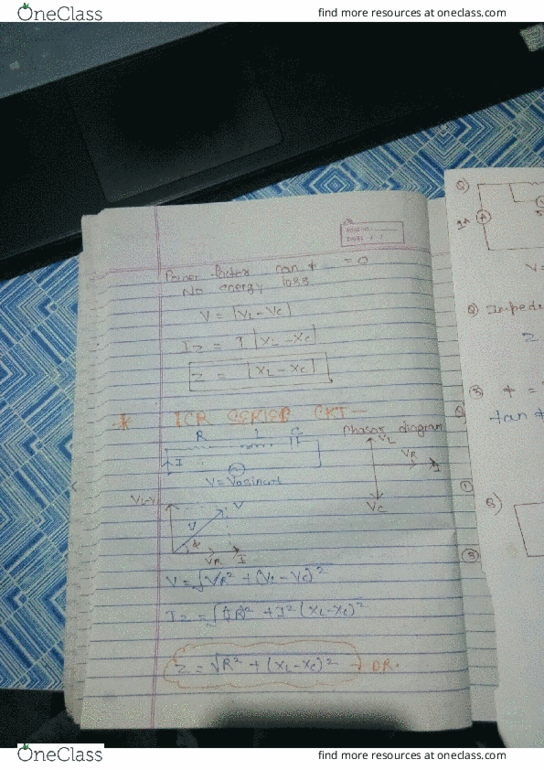 OneClass
find more resources at oneclass.com
Power factor cos φ = 0
No energy loss
V = |VL - VC|
IZ = I |XL - XC|
Z = |XL - XC|
* LCR SERIES CKT
R L C
Phasor diagram
I
V = V0 sinωt
VL
VR
I
VC
V
V
φ
VR
I
V = √VR² + (VL - VC)²
IZ = √(IR)² + I²(XL - XC)²
Z = √R² + (XL - XC)² → OR.
Q)
1A
A
V =
Q) Impede
Z
tan φ
OneClass
find more resources at oneclass.com